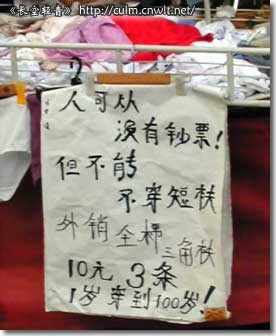 《长空轻音》http://culm.cnwlt.net/
人可从
没有钞票！
但不能
不穿短栨
外销全棉
三角栨
10元 3条
1岁穿到100岁！